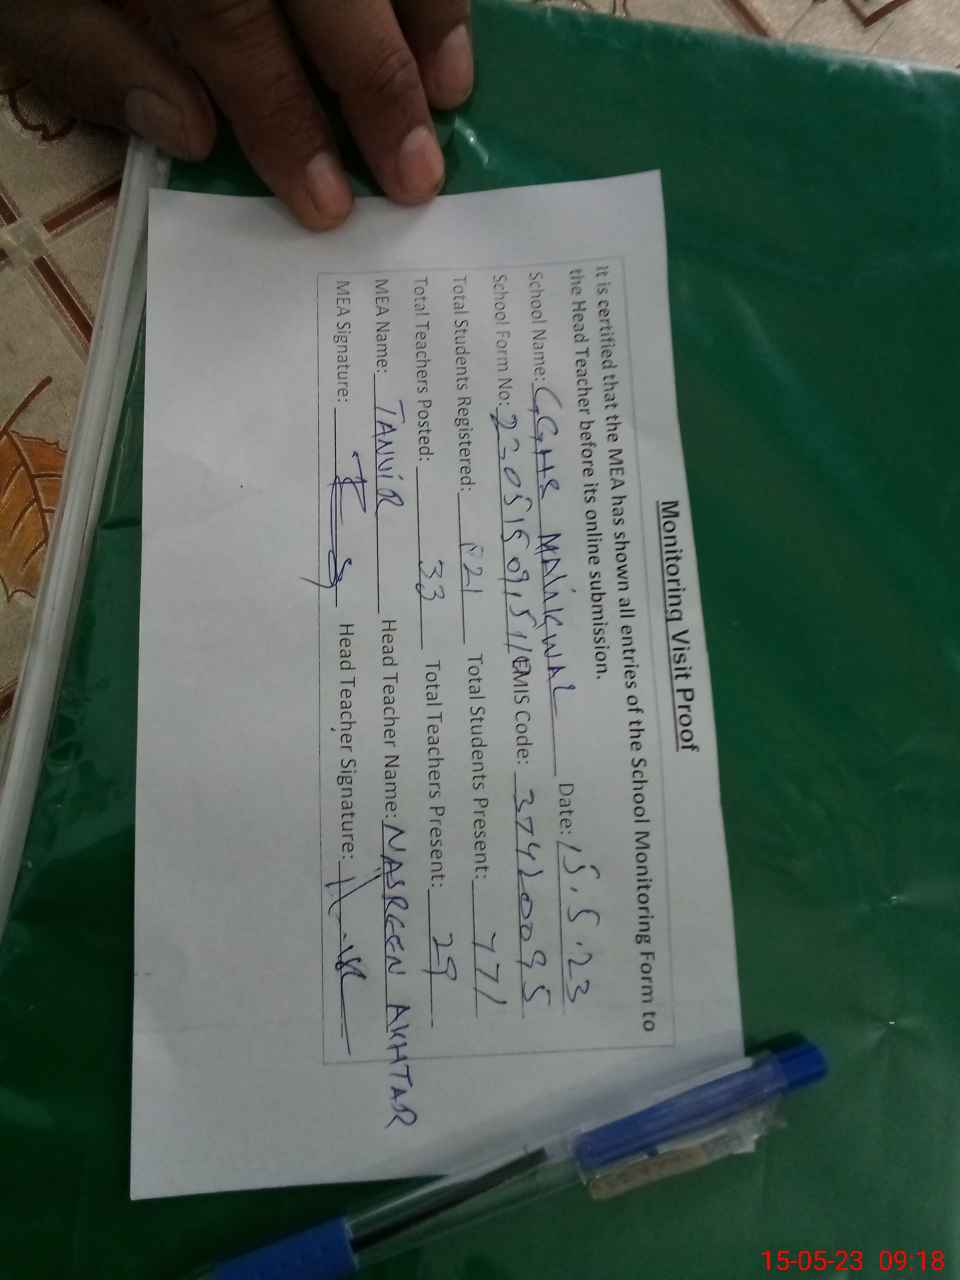 Monitoring Visit Proof
It is certified that the MEA has shown all entries of the School Monitoring Form to
the Head Teacher before its online submission.
School Name: GGHS MALAKWAL Date: 15.5.23
School Form No: EMIS Code: 37420095
Total Students Registered: 821 Total Students Present: 771
Total Teachers Posted: 33 Total Teachers Present: 29
MEA Name: TANVIR Head Teacher Name: NASREEN AKHTAR
MEA Signature: Head Teacher Signature:
15-05-23 09:18